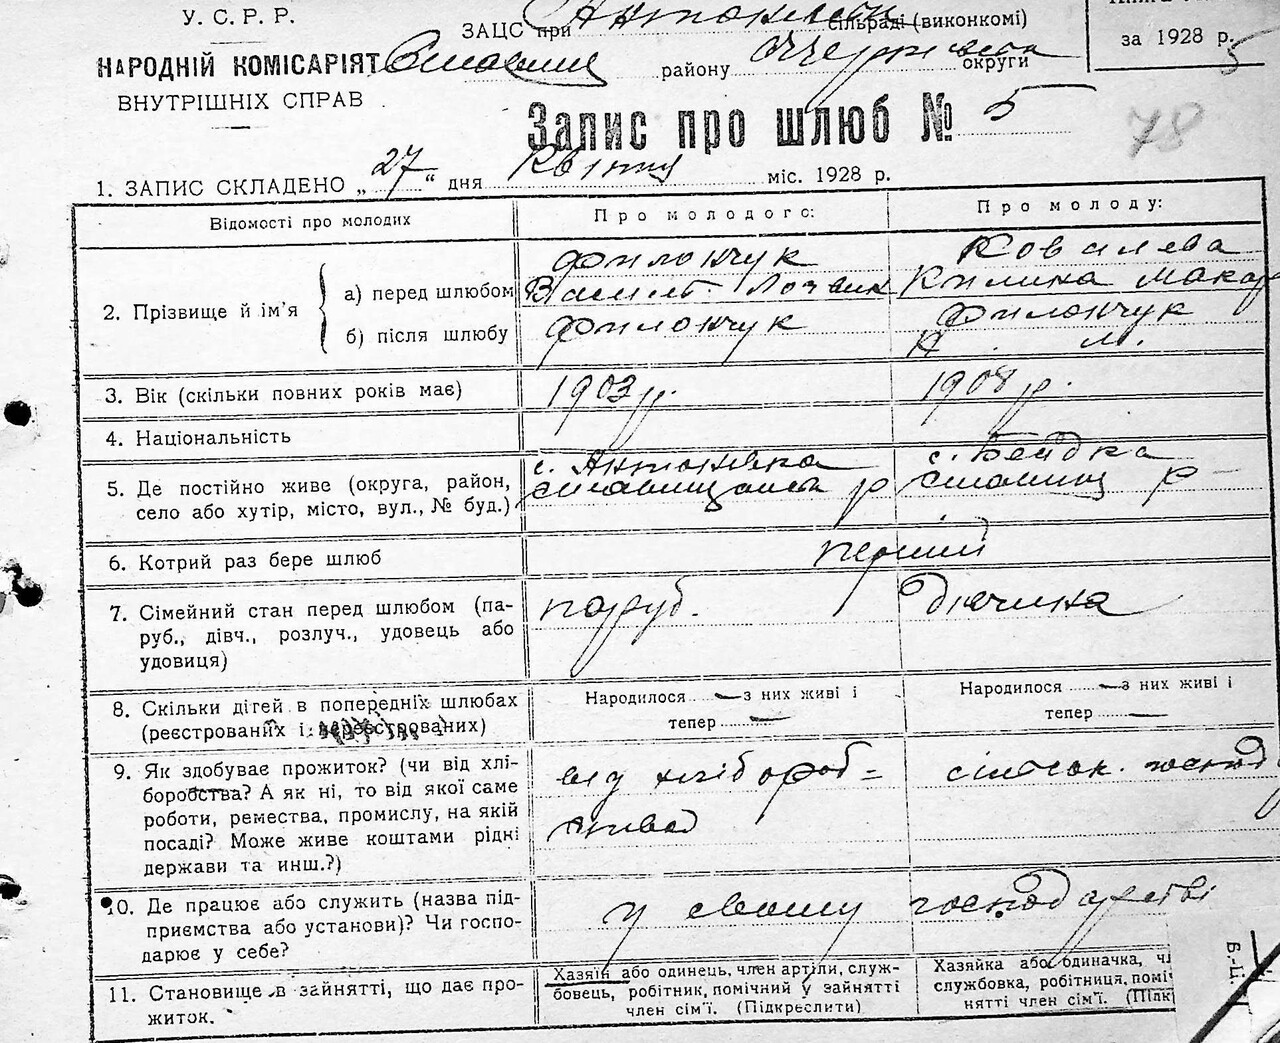 У. С. Р. Р.
ЗАЦС при сільраді (виконкомі)
за 1928 р. 5
НАРОДНІЙ КОМІСАРІЯТ
району округи
ВНУТРІШНІХ СПРАВ
Запис про шлюб № 5
78
1. ЗАПИС СКЛАДЕНО „27“ дня Квітня міс. 1928 р.
Відомості про молодих
Про молодого:
Про молоду:
2. Прізвище й ім'я
а) перед шлюбом
Филончук
Василь
Ковалева
Килина Макар
б) після шлюбу
Филончук
Филончук
К. М.
3. Вік (скільки повних років має)
1903 р.
1908 р.
4. Національність
5. Де постійно живе (округа, район,
село або хутір, місто, вул., № буд.)
с. Антонівка
р
с.
р
6. Котрий раз бере шлюб
перший
7. Сімейний стан перед шлюбом (па-
руб., дівч., розлуч., удовець або
удовиця)
паруб.
дівчина
8. Скільки дітей в попередніх шлюбах
(реєстрованих і нереєстрованих)
Народилося — з них живі і
тепер —
Народилося — з них живі і
тепер —
9. Як здобуває прожиток? (чи від хлі-
боробства? А як ні, то від якої саме
роботи, ремества, промислу, на якій
посаді? Може живе коштами рідні
держави та инш.?)
від хлібороб=
ства
сільськ. господ
10. Де працює або служить (назва під-
приємства або установи)? Чи госпо-
дарює у себе?
у своєму господарстві
11. Становище в зайнятті, що дає про-
житок.
Хазяїн або одинець, член артіли, служ-
бовець, робітник, помічний у зайнятті
член сім'ї. (Підкреслити)
Хазяйка або одиначка, чл
службовка, робітниця, поміч
нятті член сім'ї. (Підк
Б.-Ц.